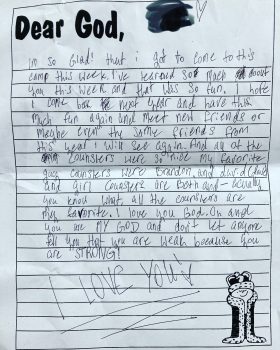 Dear God,
im so Glad! that i got to come to this
camp this week. I've learned so much about
you this week and that was so fun. I hope
I come back next year and have this
Much fun again and meet new friends or
Maybe even the same friends from
this year I will see again. And all of the
counslers were so nice my favorite
guy counslers were Brandon, and
and girl counslers are Beth and - actually
you know what, all the counslers are
my favorite. I love you God. Oh and
you are MY GOD and don't let anyone
tell you that you are weak because you
are STRONG!
I LOVE YOU!